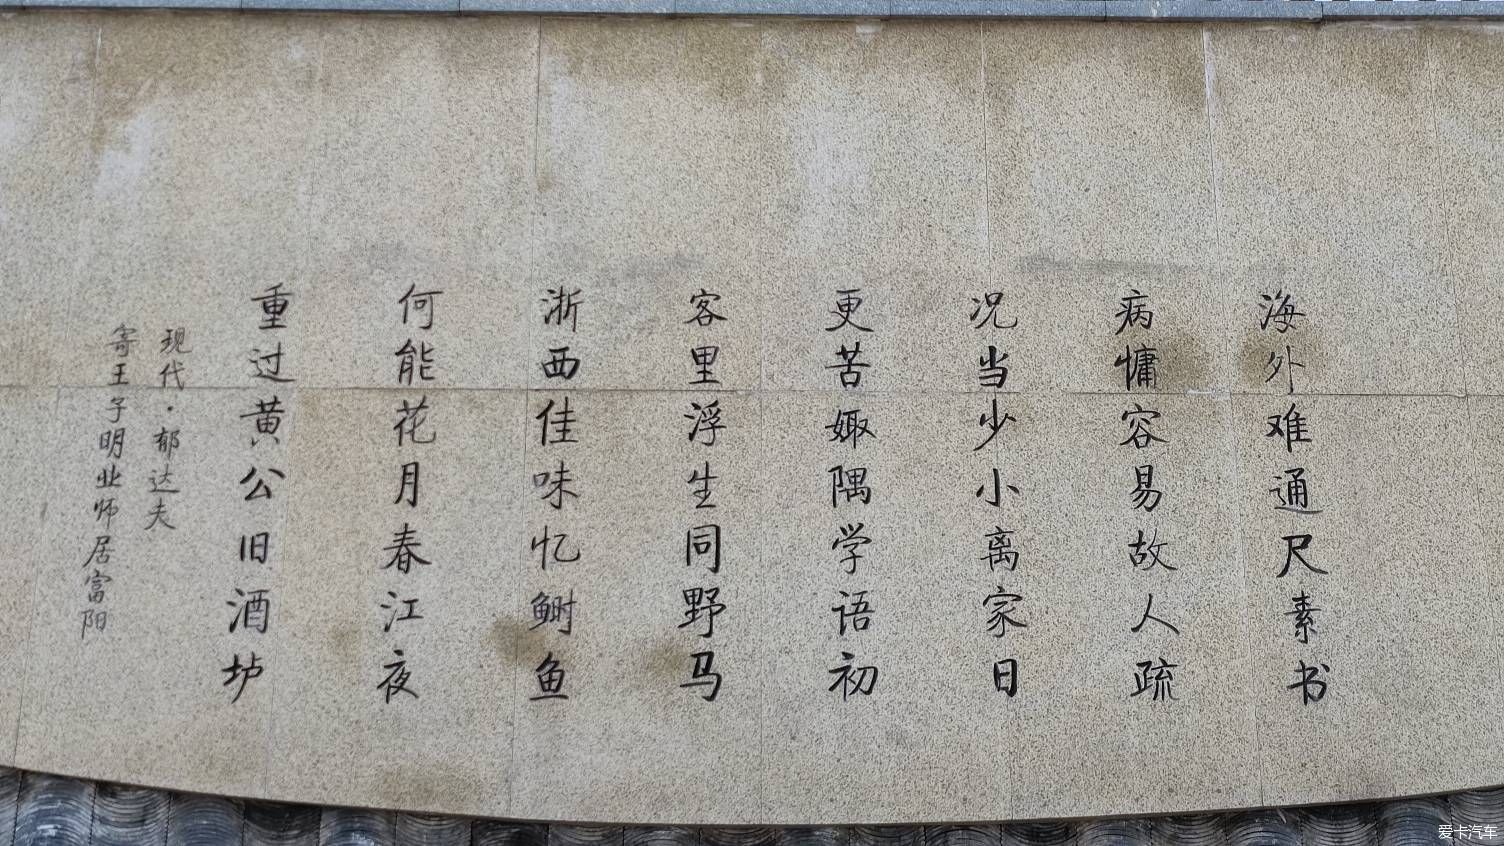 海外难通尺素书
病慵容易故人疏
况当少小离家日
更苦娵隅学语初
客里浮生同野马
浙西佳味忆鲥鱼
何能花月春江夜
重过黄公旧酒垆
现代·郁达夫
寄王子明业师居富阳
爱卡汽车